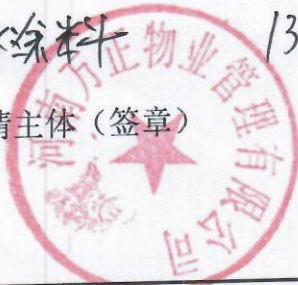 涂料 13
请主体（签章）
河南万正物业管理有限公司